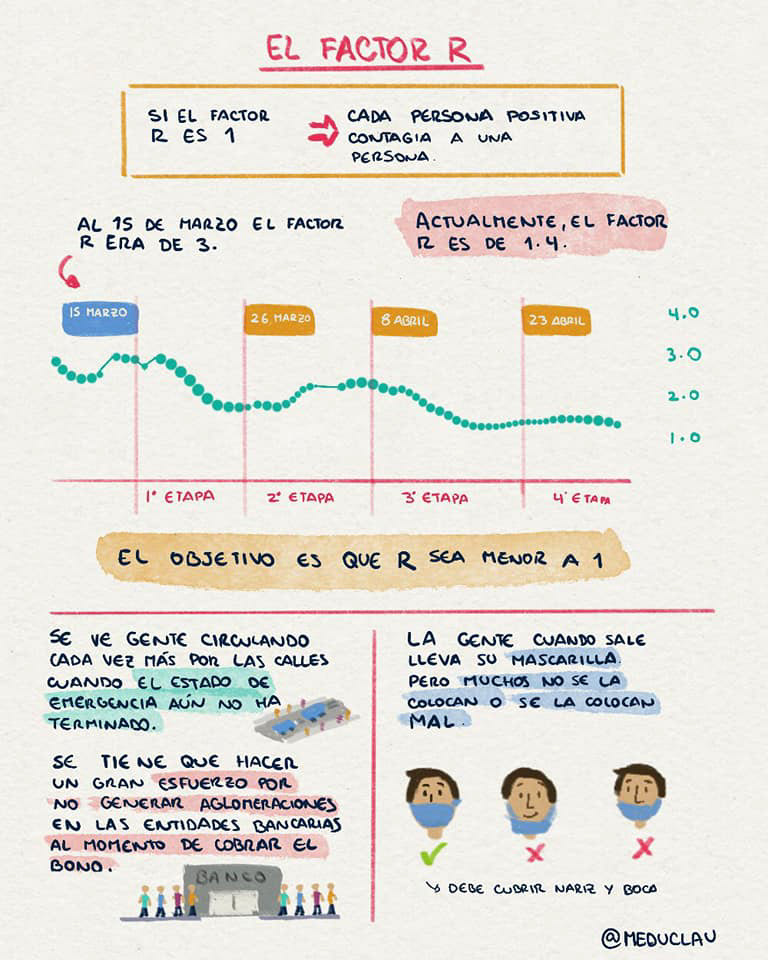 EL FACTOR R
SI EL FACTOR
R ES 1
CADA PERSONA POSITIVA
CONTAGIA A UNA
PERSONA.
AL 15 DE MARZO EL FACTOR
R ERA DE 3.
ACTUALMENTE, EL FACTOR
R ES DE 1.4.
15 MARZO
26 MARZO
8 ABRIL
23 ABRIL
4.0
3.0
2.0
1.0
1° ETAPA
2° ETAPA
3° ETAPA
4° ETAPA
EL OBJETIVO ES QUE R SEA MENOR A 1
SE VE GENTE CIRCULANDO
CADA VEZ MÁS POR LAS CALLES
CUANDO EL ESTADO DE
EMERGENCIA AÚN NO HA
TERMINADO.
SE TIENE QUE HACER
UN GRAN ESFUERZO POR
NO GENERAR AGLOMERACIONES
EN LAS ENTIDADES BANCARIAS
AL MOMENTO DE COBRAR EL
BONO.
BANCO
LA GENTE CUANDO SALE
LLEVA SU MASCARILLA.
PERO MUCHOS NO SE LA
COLOCAN O SE LA COLOCAN
MAL.
DEBE CUBRIR NARIZ Y BOCA
@MEDUCLAU